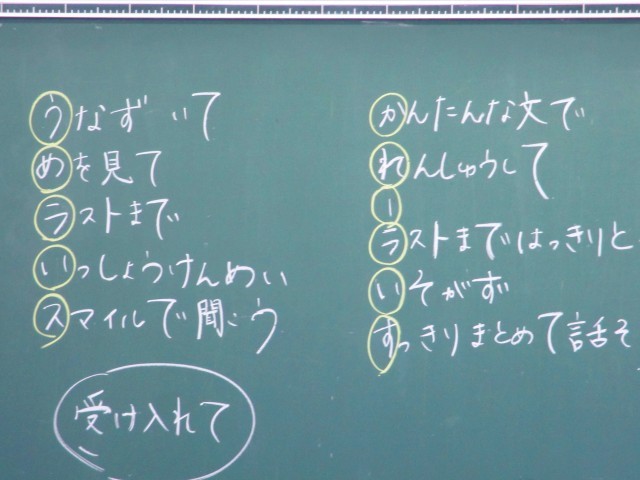 うなずいて
めを見て
ラストまで
いっしょうけんめい
スマイルで聞こう
受け入れて
かんたんな文で
れんしゅうして
ー
ラストまではっきりと
いそがず
すっきりまとめて話そ